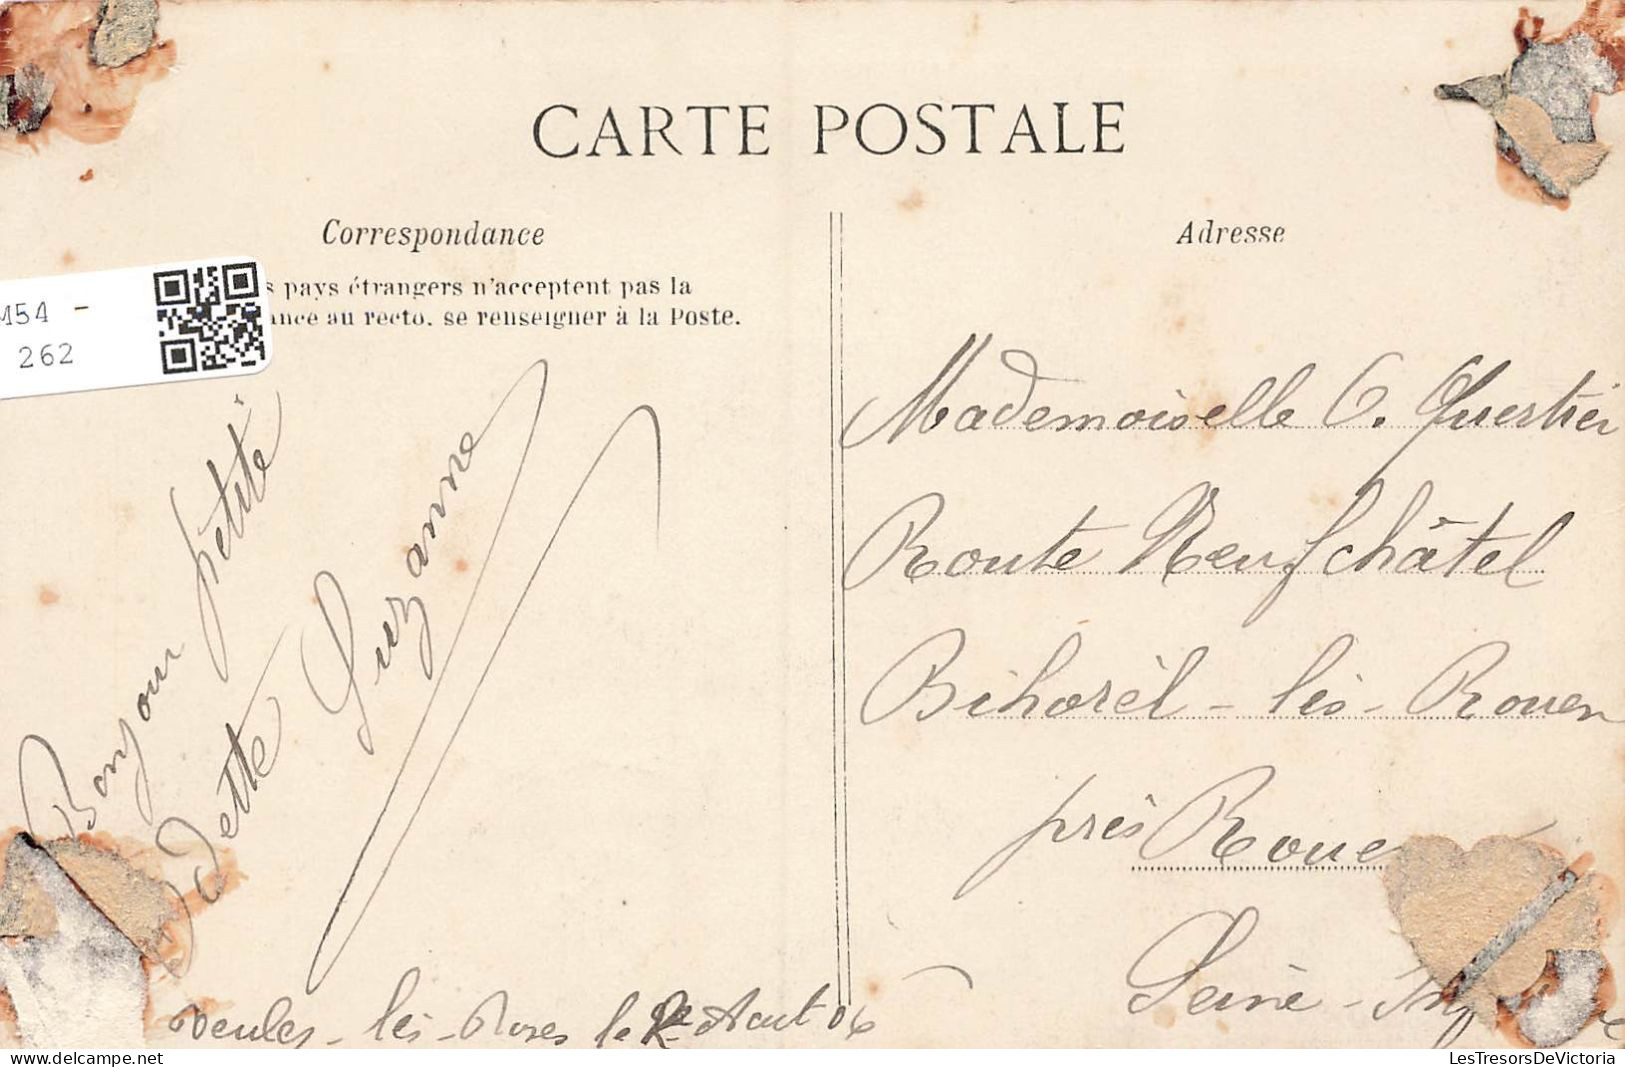 CARTE POSTALE
Correspondance
s pays étrangers n'acceptent pas la
ance au recto, se renseigner à la Poste.
Adresse
M54 -
262
Bonjour petite
Odette
Suzanne
Veules-les-Roses le 2 Août 06
Mademoiselle O. Questier
Route Neufchâtel
Bihorel-lès-Rouen
près Roue
Seine-Inf re
LesTresorsDeVictoria